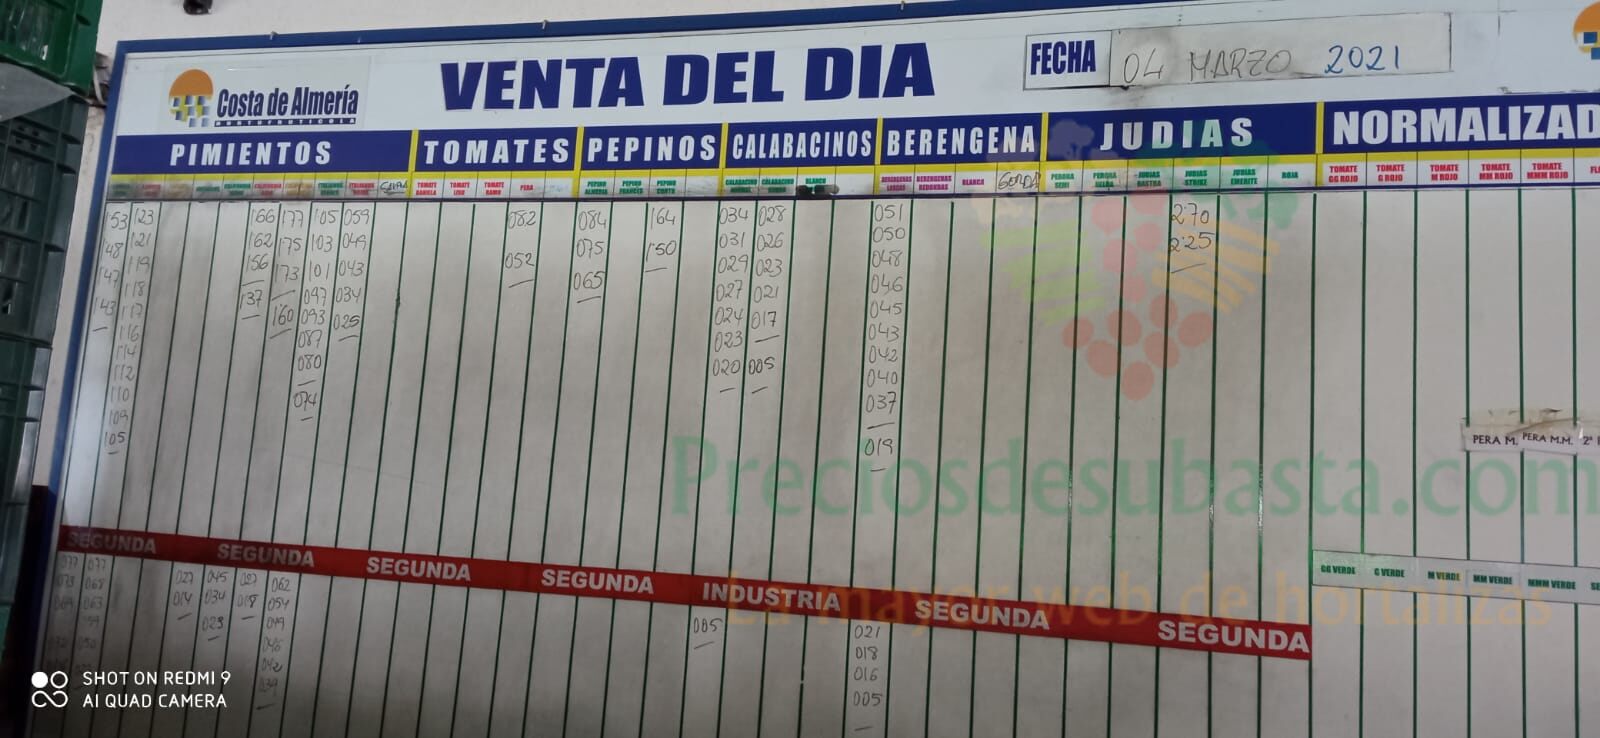 Costa de Almería
HORTOFRUTICOLA
VENTA DEL DIA
FECHA 04 MARZO 2021
PIMIENTOS TOMATES PEPINOS CALABACINOS BERENGENA JUDIAS NORMALIZAD
TOMATE DANIELA TOMATE LISO TOMATE RAMO PERA PEPINO ALMERIA PEPINO FRANCES PEPINO CORTO BLANCO BERENGENAS LARGAS BERENGENAS REDONDAS BLANCA GORDA PERONA SEMI PERONA JUDIAS RASTRA JUDIAS STRIKE JUDIAS EMERITE ROJA TOMATE GG ROJO TOMATE G ROJO TOMATE M ROJO TOMATE MM ROJO TOMATE MMM ROJO
1'53 123 166 177 105 059 082 084 164 034 028 051 2'70
1'48 121 162 175 103 049 052 075 1'50 031 026 050 2'25
147 119 156 173 101 043 065 029 023 048
143 118 137 160 097 034 027 021 046
117 093 025 024 017 045
116 087 023 043
114 080 020 005 042
112 074 040
110 037
109 019
105
PERA M. PERA M.M. 2ª
SEGUNDA SEGUNDA SEGUNDA SEGUNDA INDUSTRIA SEGUNDA SEGUNDA
GG VERDE G VERDE M VERDE MM VERDE MMM VERDE
077 077 027 045 027 062 005 021
073 068 014 034 018 054 018
063 023 049 016
042 005
039
Preciosdesubasta.com
La mayor web de hortalizas
SHOT ON REDMI 9
AI QUAD CAMERA